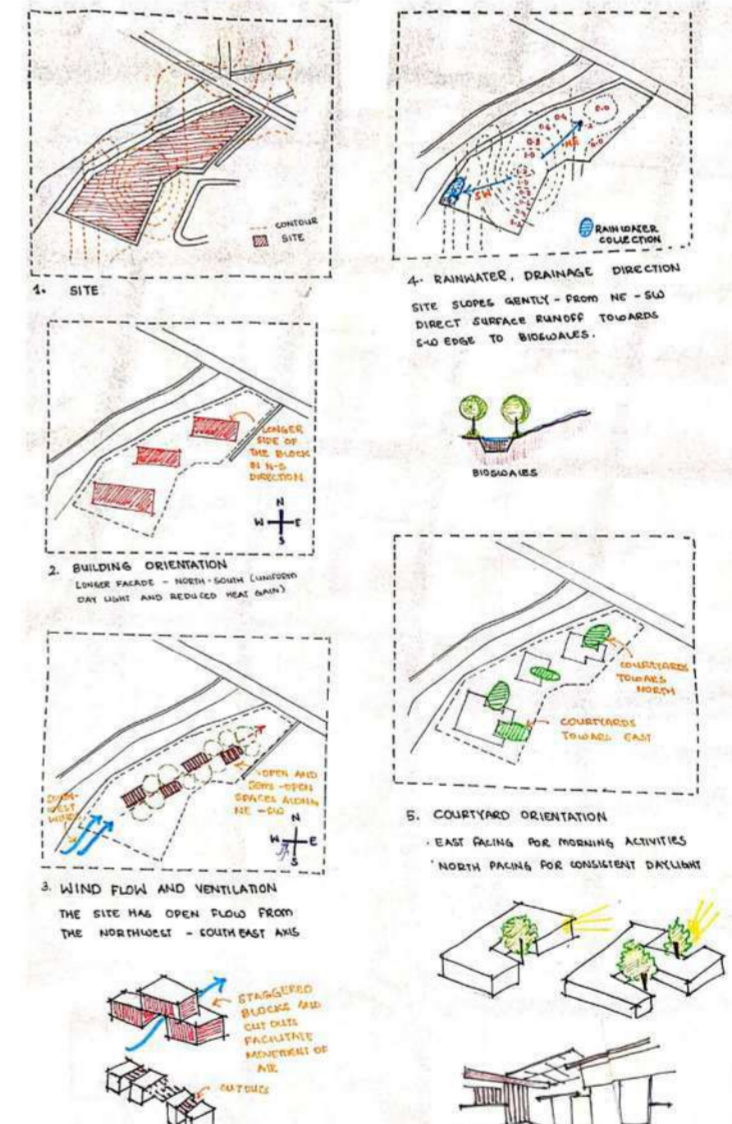 CONTOUR
SITE
1. SITE
LONGER
SIDE OF
THE BLOCK
IN N-S
DIRECTION
N
W E
S
2. BUILDING ORIENTATION
LONGER FACADE - NORTH-SOUTH (UNIFORM
DAY LIGHT AND REDUCED HEAT GAIN)
WEST
OPEN AND
SEMI-OPEN
SPACES ALONG
NE-SW
N
W E
S
3. WIND FLOW AND VENTILATION
THE SITE HAS OPEN FLOW FROM
THE NORTHWEST - SOUTHEAST AXIS
STAGGERED
BLOCKS AND
CUT OUTS
FACILITATE
MOVEMENT OF
AIR
CUTOUTS
NE
SW
RAINWATER
COLLECTION
4. RAINWATER, DRAINAGE DIRECTION
SITE SLOPES GENTLY - FROM NE - SW
DIRECT SURFACE RUNOFF TOWARDS
S-W EDGE TO BIOSWALES.
BIOSWALES
COURTYARDS
TOWARS
NORTH
COURTYARDS
TOWARS EAST
5. COURTYARD ORIENTATION
· EAST FACING FOR MORNING ACTIVITIES
· NORTH FACING FOR CONSISTENT DAYLIGHT